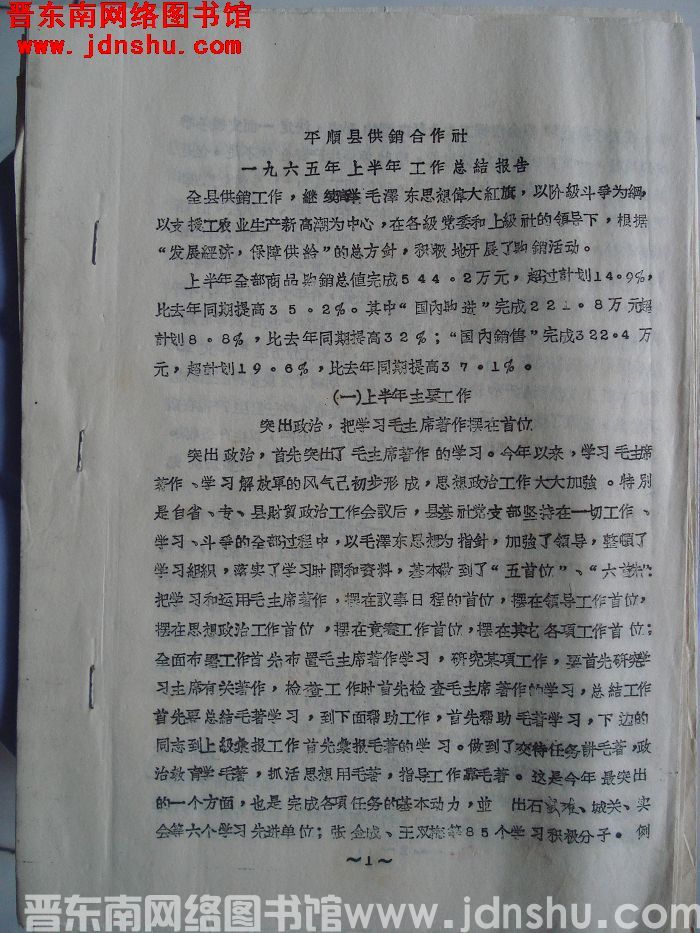 晋东南网络图书馆
www.jdnshu.com
平順县供銷合作社
一九六五年上半年工作总結报告
全县供銷工作，継续举毛澤东思想偉大紅旗，以阶級斗爭为綱，
以支援工农业生产新高潮为中心，在各級党委和上級社的領导下，根据
“发展經济，保障供給”的总方針，积极地开展了购銷活动。
上半年全部商品购銷总值完成544.2万元，超过計划14.9%，
比去年同期提高35.2%。其中“国內购进”完成221.8万元超
計划8.8%，比去年同期提高32%；“国內銷售”完成322.4万
元，超計划19.6%，比去年同期提高37.1%。
(一)上半年主要工作
突出政治，把学习毛主席著作摆在首位
突出政治，首先突出了毛主席著作的学习。今年以来，学习毛主席
著作、学习解放軍的风气已初步形成，思想政治工作大大加強。特別
是自省、专、县財貿政治工作会議后，县基社党支部坚持在一切工作、
学习、斗爭的全部过程中，以毛澤东思想为指針，加強了领导，整頓了
学习組織，落实了学习时間和資料，基本做到了“五首位”、“六首先”：
把学习和运用毛主席著作，摆在議事日程的首位，摆在領导工作首位，
摆在思想政治工作首位，摆在竟賽工作首位，摆在其它各項工作首位；
全面布署工作首先布置毛主席著作学习，研究某項工作，要首先研究学
习主席有关著作，检查工作时首先检查毛主席著作的学习，总結工作
首先要总結毛著学习，到下面帮助工作，首先帮助毛著学习，下边的
同志到上級彙报工作首先彙报毛著的学习。做到了交待任务講毛著，政
治教育学毛著，抓活思想用毛著，指导工作靠毛著。这是今年最突出
的一个方面，也是完成各項任务的基本动力，並 出石窰难、城关、实
会等六个学习先进单位；张金成、王双 等85个学习积极分子。例
～1～
晋东南网络图书馆 www.jdnshu.com